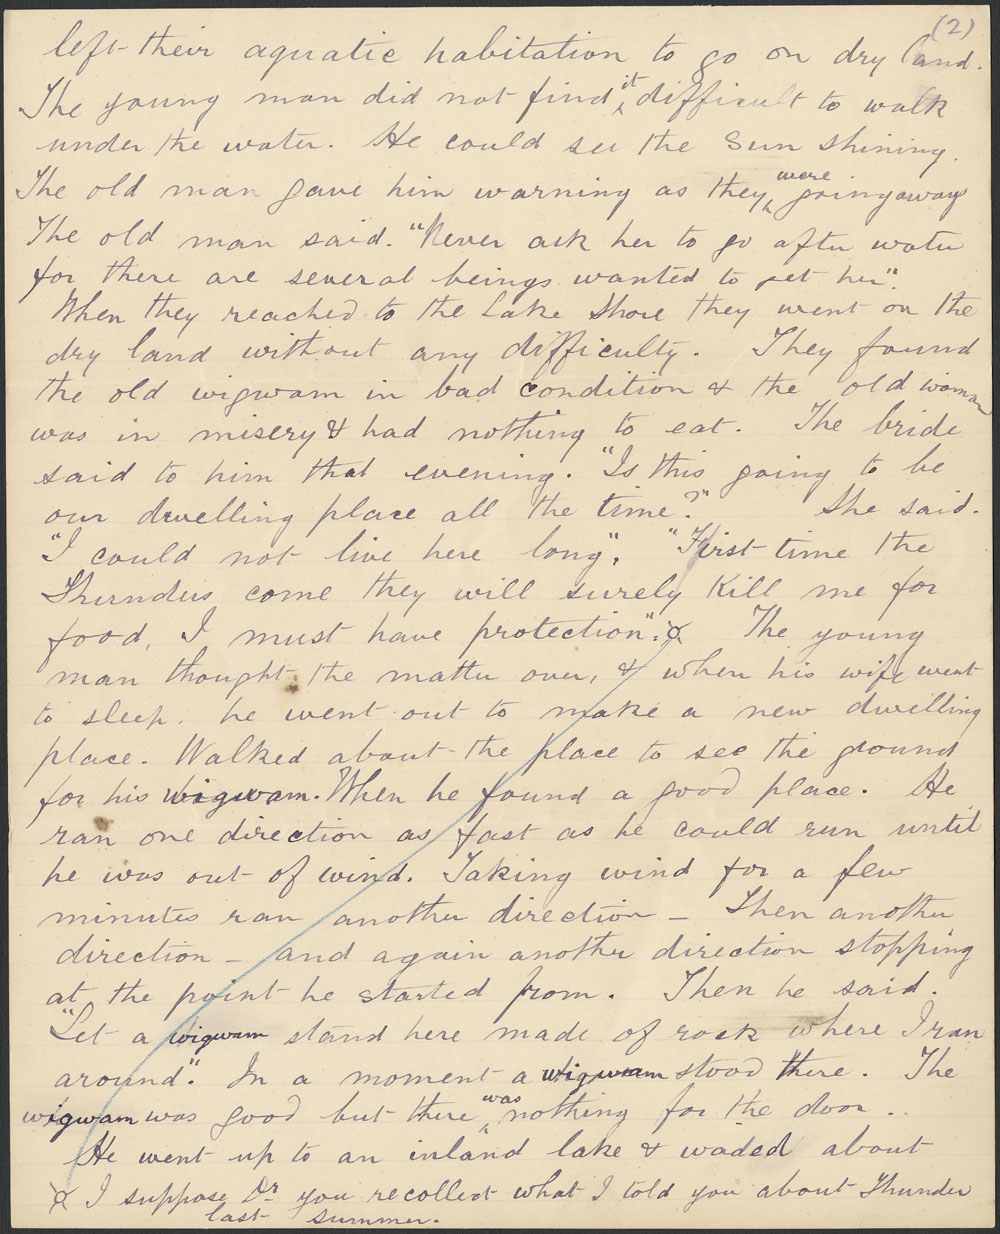 (2)
left their aquatic habitation to go on dry land.
The young man did not find it difficult to walk
under the water. He could see the Sun shining.
The old man gave him warning as they were going away
The old man said. "Never ask her to go after water
for there are several beings wanted to get her".
When they reached to the Lake Shore they went on the
dry land without any difficulty. They found
the old wigwam in bad condition & the old woman
was in misery & had nothing to eat. The bride
said to him that evening. "Is this going to be
our dwelling place all the time?" She said.
"I could not live here long". "First time the
Thunders come they will surely Kill me for
food, I must have protection". x The young
man thought the matter over, & when his wife went
to sleep. he went out to make a new dwelling
place. Walked about the place to see the ground
for his wigwam. When he found a good place. He
ran one direction as fast as he could run until
he was out of wind. Taking wind for a few
minutes ran another direction – Then another
direction – and again another direction stopping
at the point he started from. Then he said.
"Let a wigwam stand here made of rock where I ran
around". In a moment a wigwam stood there. The
wigwam was good but there was nothing for the door..
He went up to an inland lake & waded about
x I suppose Dr. you recollect what I told you about Thunder
last summer.